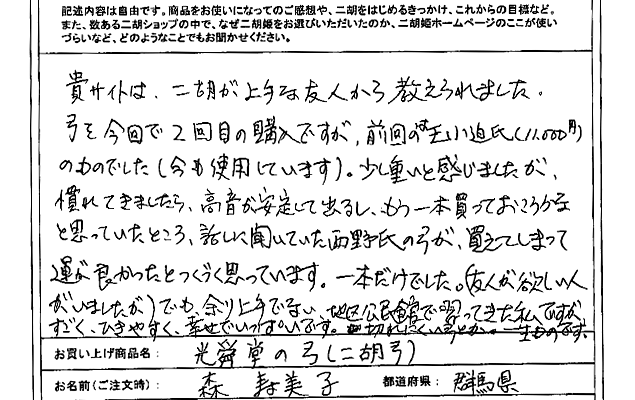 記述内容は自由です。商品をお使いになってのご感想や、二胡をはじめるきっかけ、これからの目標など。
また、数ある二胡ショップの中で、なぜ二胡姫をお選びいただいたのか、二胡姫ホームページのここが使い
づらいなど、どのようなことでもお聞かせください。
貴サイトは、二胡が上手な友人から教えられました。
弓を今回で2回目の購入ですが、前回のは王小迪氏(11.000円)
のものでした(今も使用しています)。少し重いと感じましたが、
慣れてきましたら、高音が安定して出るし、もう一本買っておこうかな
と思っていたところ、話しに聞いていた西野氏の弓が、買えてしまって
運が良かったとつくづく思っています。一本だけでした。(友人が欲しい人
がいましたが)でも、余り上手でない、地区公民館で習ってきた私ですが
すごく、ひきやすく、幸せでいっぱいです。切れにくい弓とか。一生ものです。
お買い上げ商品名: 光舜堂の弓(二胡弓)
お名前(ご注文時): 森 寿美子 都道府県: 群馬県